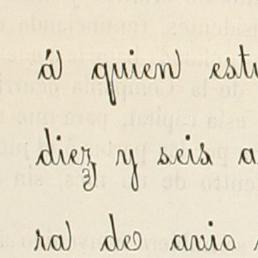 á quien estu
diez y seis a
ra de avio